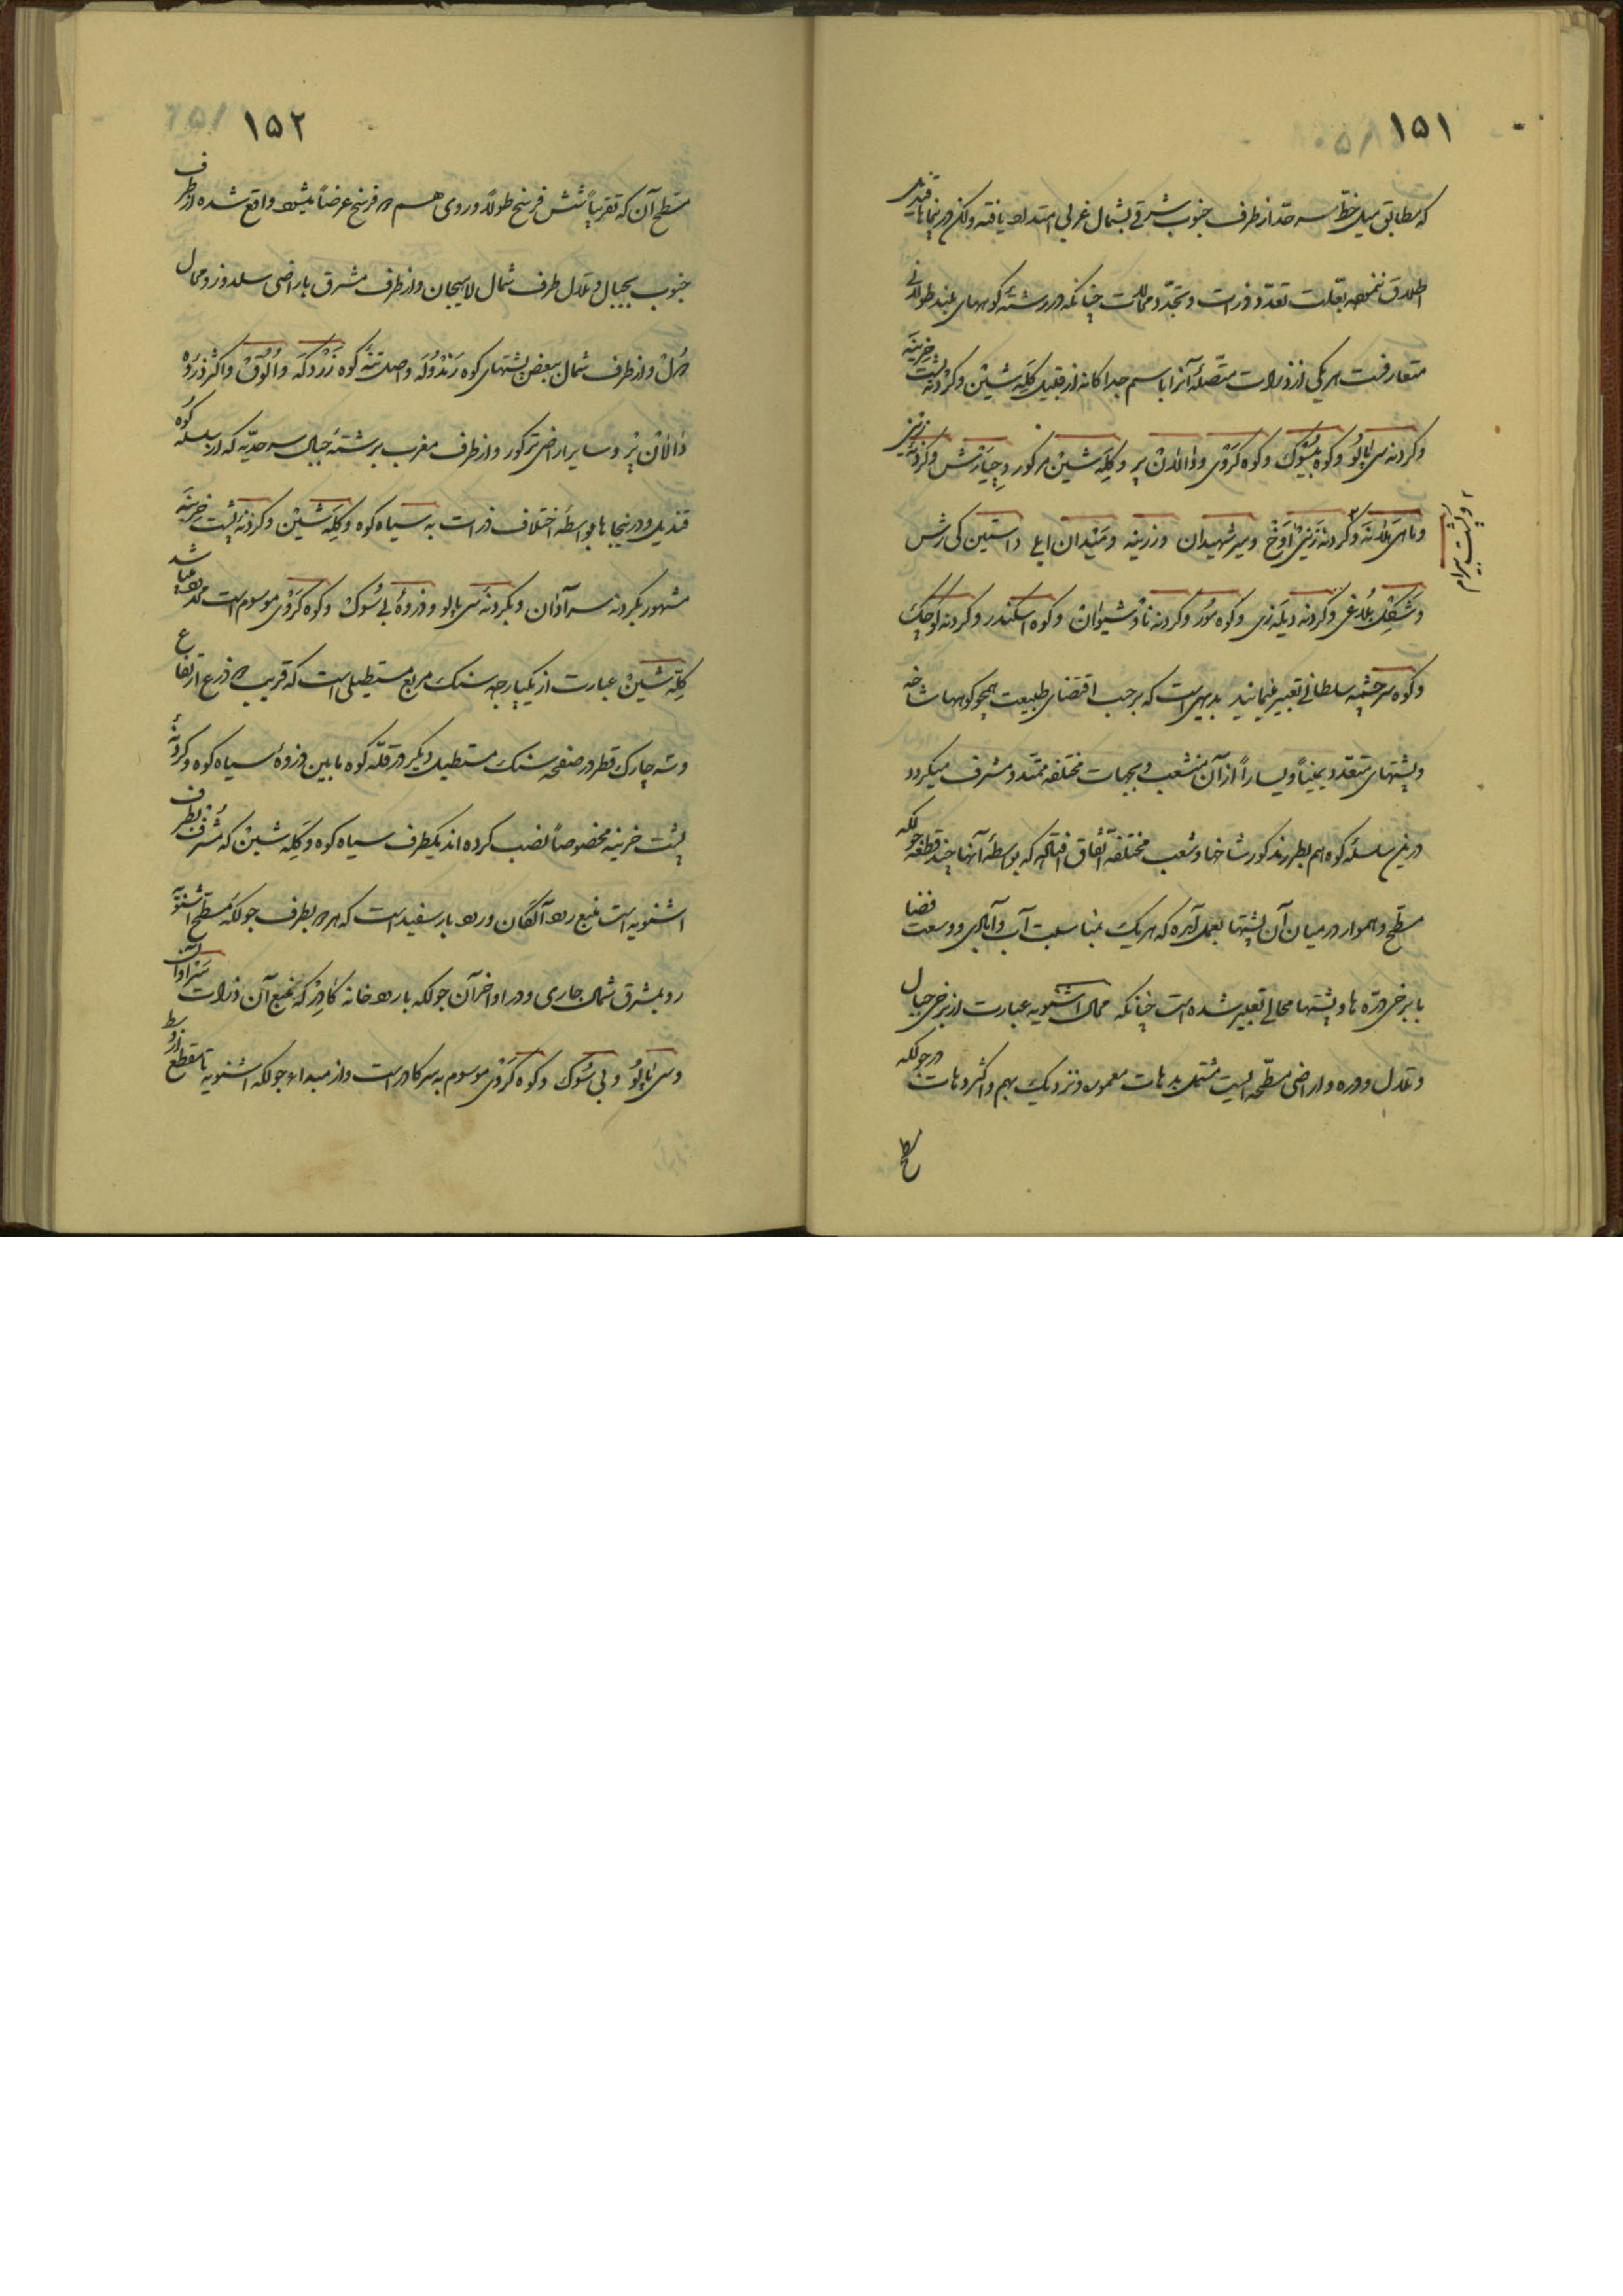 ١٥١
که مطابق میل خط سرحد از طرف جنوب شرقی بشمال غربی امتداد یافته ولکن در اینجاها قندیل
اطلاق نشده بعلت تعدد ذروات و تجدد محالات چنانکه در رشته کوههای بلند طولانی
متعارفست هر یکی از ذروات متصلهٔ آنرا باسم جداگانه از قبیل کِلَه شین و گردنه پشت خزینه
و گردنه سی پاپالو و کوه بیسوک و کوه کَرَوْی و دالان پر و کِلَه شین مرکور و جیارَش و گردنهٔ
و مای هلانه و گردنه زینی اَوَخ و میر شهیدان و زرینه و میدان ایلی داستین کی رش
و پشت بیرام
و شکل بُلاغی و گردنه دیله زی و کوه مور و گردنه ناوشیوان و کوه اسکندر و گردنه کوچک
و کوه سرچشمه سلطانی تعبیر مینمایند بدیهی است که برحسب اقتضای طبیعت همچو کوهها شاخه
و پشتهای متعدد یمیناً و یساراً از آن منشعب و بجهات مختلفه ممتد و مشرف میگردد
در این سلسله کوه هم بطرز مذکور شاخها و شعب مختلفه اتفاق افتاده که بواسطهٔ آنها چند قطعه جولگه
مسطح و هموار در میان آن پشتها بعمل آمده که هر یک بمناسبت آب و آبادی و وسعت فضا
با برخی دره ها و پشتها محالی تعبیر شده است چنانکه محال اشنویه عبارت از برخی جبال
و تلال و دره و اراضی مسطحه ایست مشتمل بدهات معموره و نزدیک بهم و اکثر دهات در جولگه
١٥٢
مسطح آن که تقریباً شش فرسخ طولاً و روی هم دو فرسخ عرضاً میشود واقع شده از طرف
جنوب بجبال و تلال طرف شمال لاهیجان و از طرف مشرق باراضی سلدوز و محال
دول و از طرف شمال ببعض پشتهای کوه رَنْدُولَه و اصل تنهٔ کوه زَرْدکَه و اُلُوق و اکثر ذروه
دالان پر و سایر اراضی مرکور و از طرف مغرب برشتهٔ جبال سرحدیه که از سلسله کوه
قندیل و در اینجاها بواسطهٔ اختلاف ذروات به سیاه کوه و کِلَه شین و گردنه پشت خزینه
مشهور بگردنه سرآدان و بگردنه سی پاپالو و ذروهٔ بی سُوک و کوه کَرَوْی موسوم است محدود میباشد
کِلَه شین عبارت از یکپارچه سنک مربع مستطیلی است که قریب دو ذرع ارتفاع
و سه چارک قطر در صفحه سنک مستطیل دیگر در قله کوه مابین ذروهٔ سیاه کوه و گردنهٔ
پشت خزینه مخصوصاً نصب کرده اند یکطرف سیاه کوه و کِلَه شین که مُشرف بطرف
اشنویه است منبع رود آلکان و رود بار سفید است که هر دو بطرف جولگه مسطح اشنویه
رو بمشرق شمال جاری و در اواخر آن جولگه با رودخانه کادِر که منبع آن ذروات سَرآوان
و سی پاپالُو و بی سُوک و کوه کَرَوْی موسوم به سرکادر است و از مبداء جولگه اشنویه تا مقطع